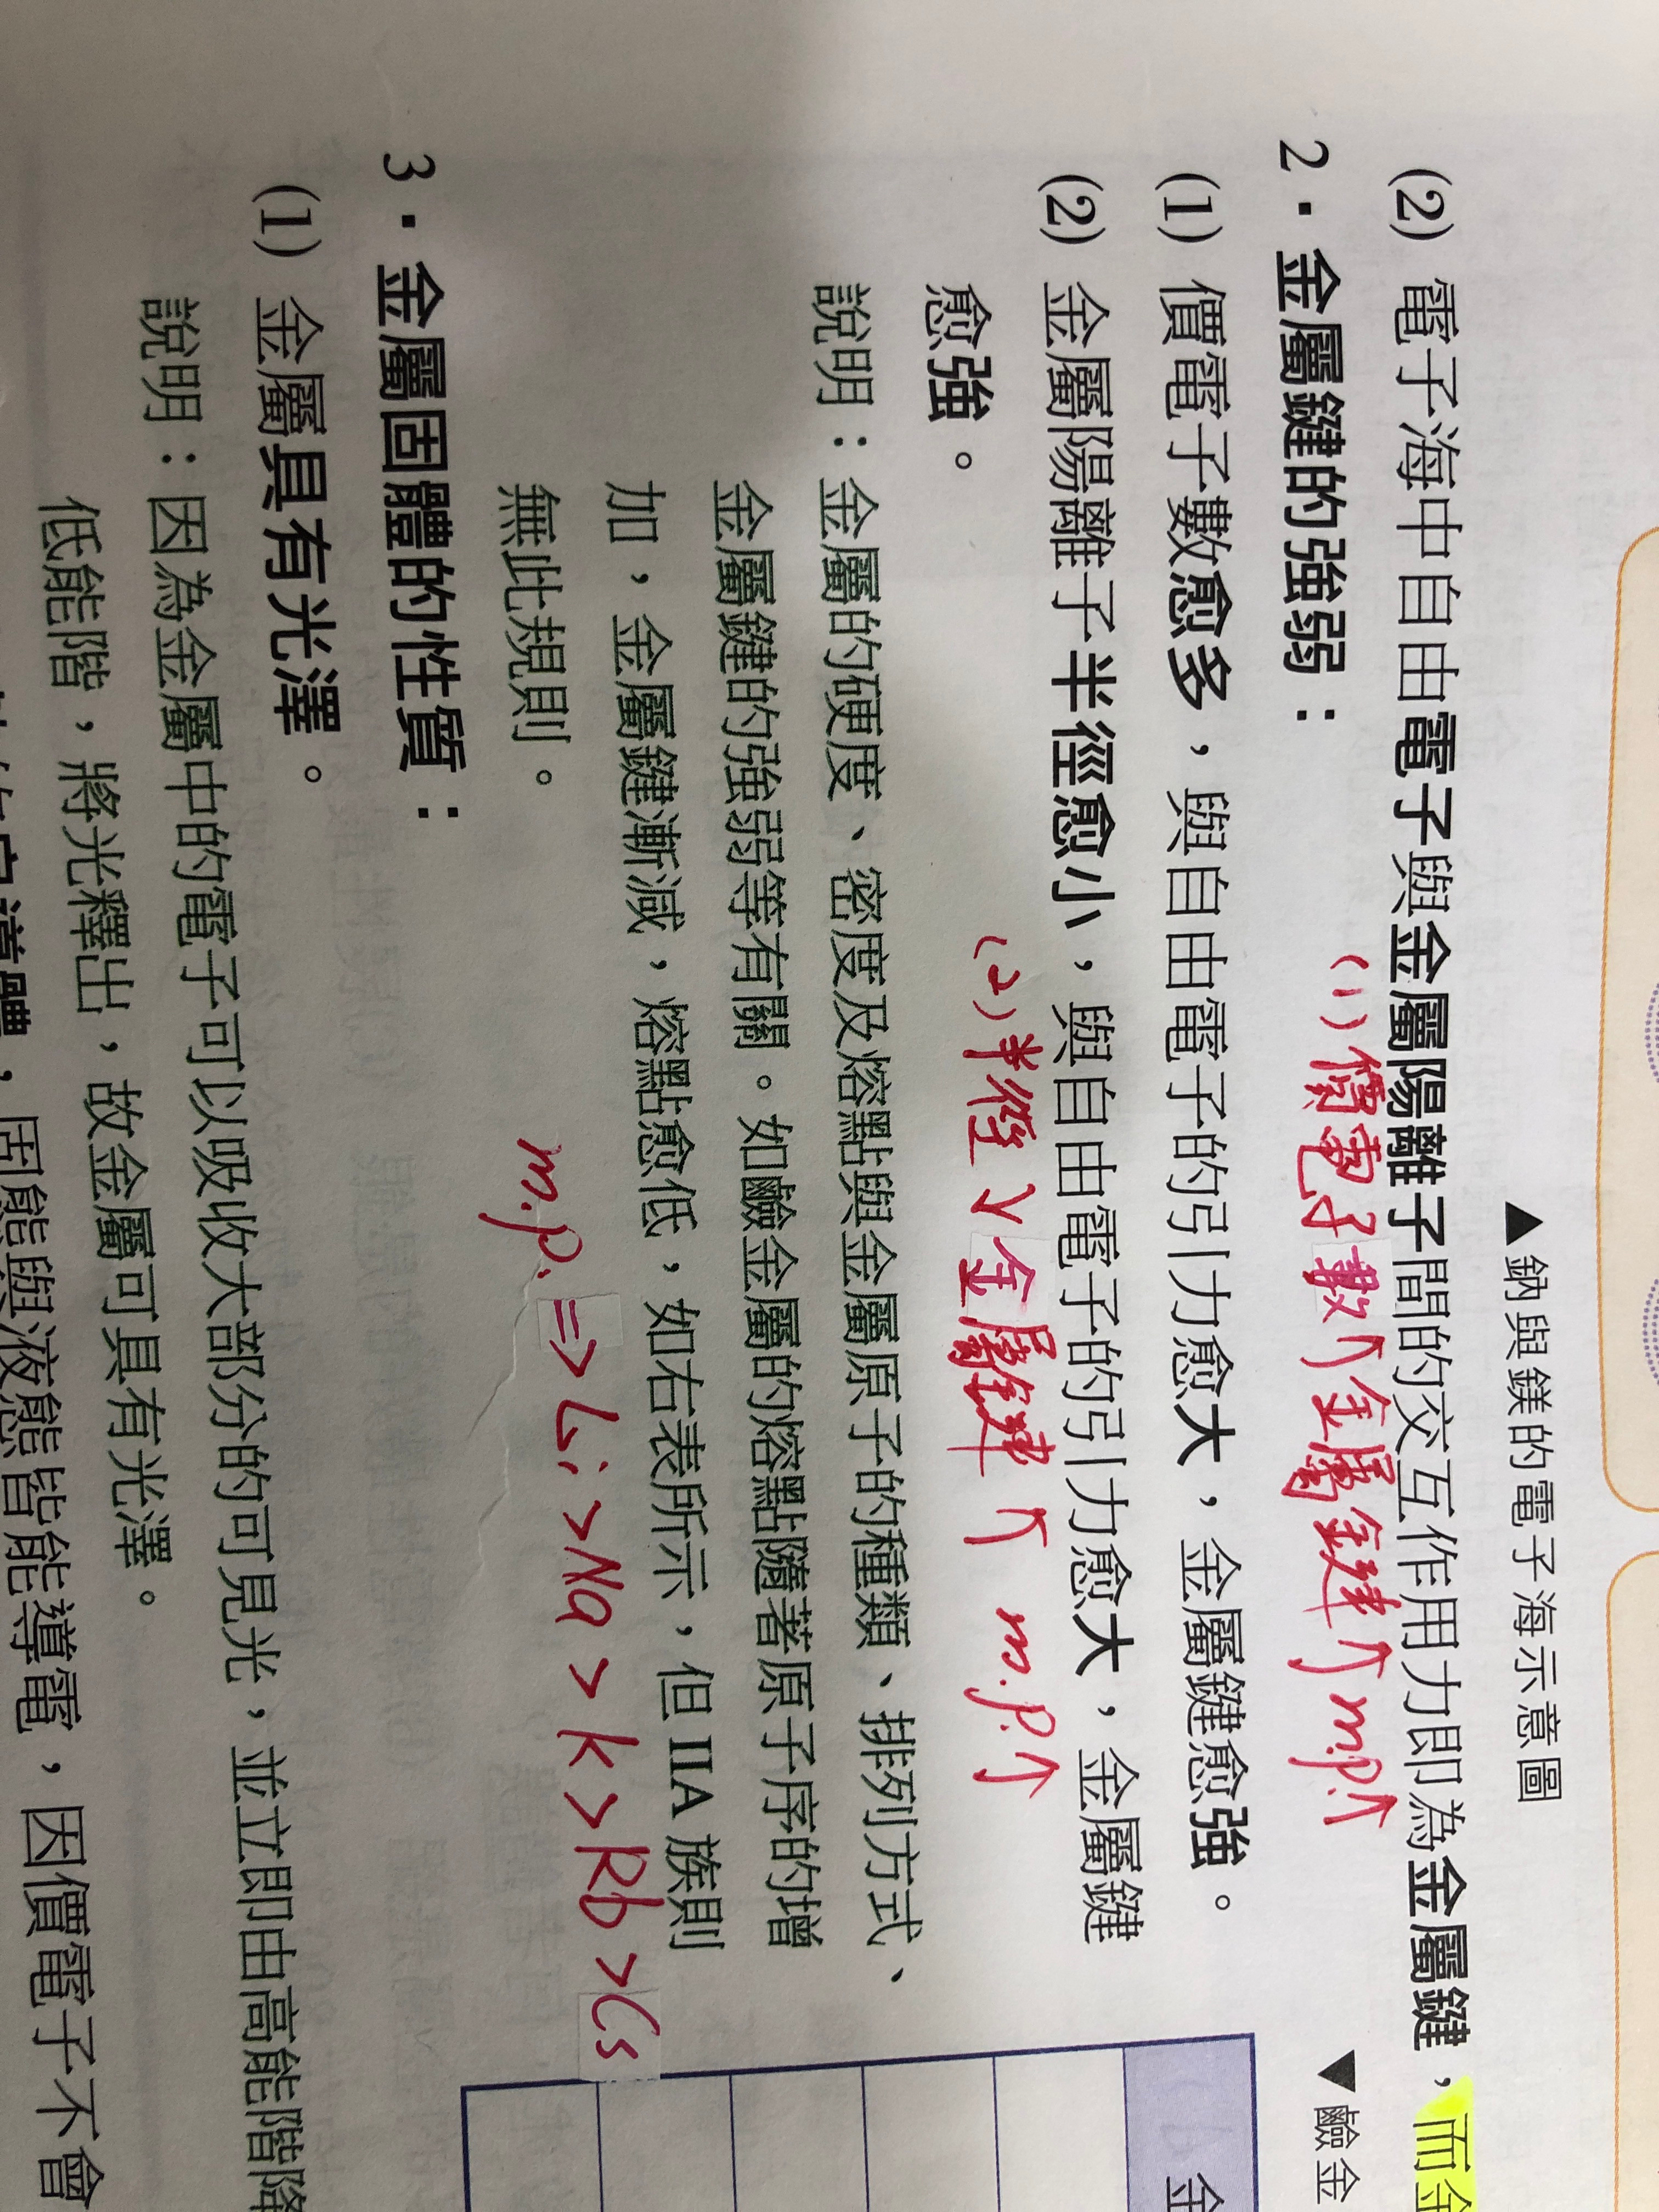 ▲鈉與鎂的電子海示意圖
(2) 電子海中自由電子與金屬陽離子間的交互作用力即為金屬鍵，而金
2．金屬鍵的強弱：
(1)價電子數↑金屬鍵↑m.p.↑
▼鹼金
(1) 價電子數愈多，與自由電子的引力愈大，金屬鍵愈強。
(2) 金屬陽離子半徑愈小，與自由電子的引力愈大，金屬鍵
愈強。
(2)半徑↓金屬鍵↑ m.p.↑
說明：金屬的硬度、密度及熔點與金屬原子的種類、排列方式、
金屬鍵的強弱等有關。如鹼金屬的熔點隨著原子序的增
加，金屬鍵漸減，熔點愈低，如右表所示，但 IIA 族則
無此規則。
m.p. ⇒ Li>Na>K>Rb>Cs
金
3．金屬固體的性質：
(1) 金屬具有光澤。
說明：因為金屬中的電子可以吸收大部分的可見光，並立即由高能階降
低能階，將光釋出，故金屬可具有光澤。
導體，固態與液態皆能導電，因價電子不會